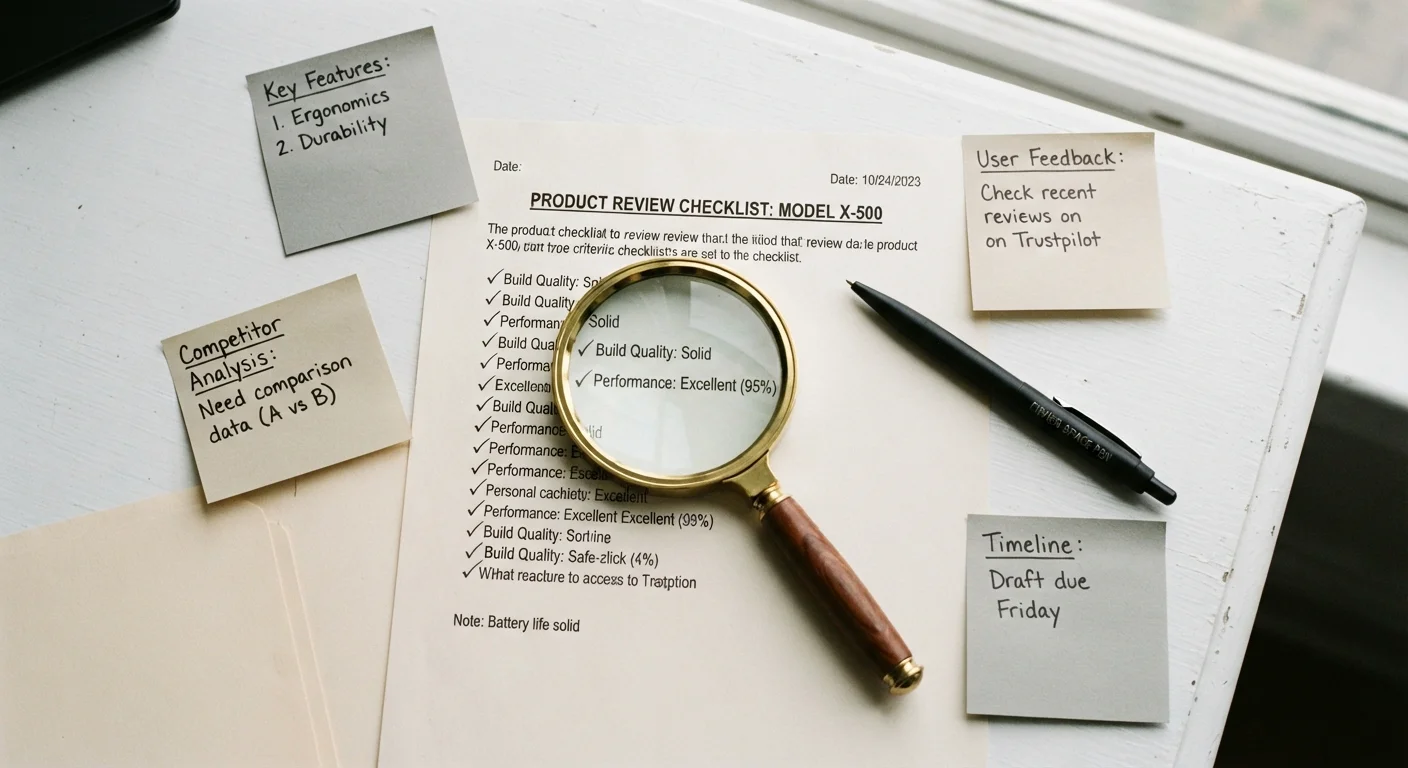 Key Features:
1. Ergonomics
2. Durability
Competitor
Analysis:
Need comparison
data (A vs B)
Date:
Date: 10/24/2023
PRODUCT REVIEW CHECKLIST: MODEL X-500
The product checklist to review review that the that review product
X-500, criteric checklists are set to the checklist.
✓ Build Quality: So
✓ Build Quality
✓ Performan
✓ Build Qua
✓ Performa
✓ Excellen
✓ Build Qual
✓ Performance
✓ Performance: E
✓ Performance: Excell
✓ Personal cachiety: Excellent
✓ Performance: Excellent Excellent (99%)
✓ Build Quality: Sortine
✓ Build Quality: Safe-zlick (4%)
✓ What reacture to access to
Note: Battery life solid
Solid
✓ Build Quality: Solid
✓ Performance: Excellent (95%)
lid
User Feedback:
Check recent
reviews on
on Trustpilot
SPACE PEN
Timeline:
Draft due
Friday